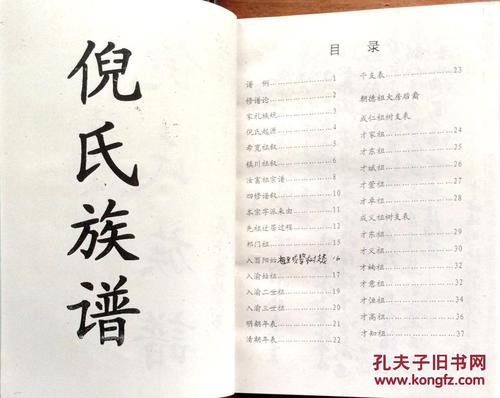 倪氏族谱
目录
谱例 1
修谱论 2
家礼族规 3
倪氏起源 4
希宽祖叙 5
横川祖叙 7
汝富祖宗谱 8
四修谱叙 10
本宗字派来由 11
先祖迁居过程 12
祁门祖 15
入酉阳始祖 16
入渝始祖 17
入渝二世祖 18
入渝三世祖 19
明朝年表 21
清朝年表 22
干支表 23
朝德祖大房后裔
成仁祖树支表
才家祖 24
才东祖 25
才斌祖 26
才萱祖 27
才卓祖 28
成义祖树支表
才东祖 29
才义祖 30
才楠祖 31
才意祖 32
才恒祖 34
才高祖 36
才知祖 37
孔夫子旧书网
www.kongfz.com